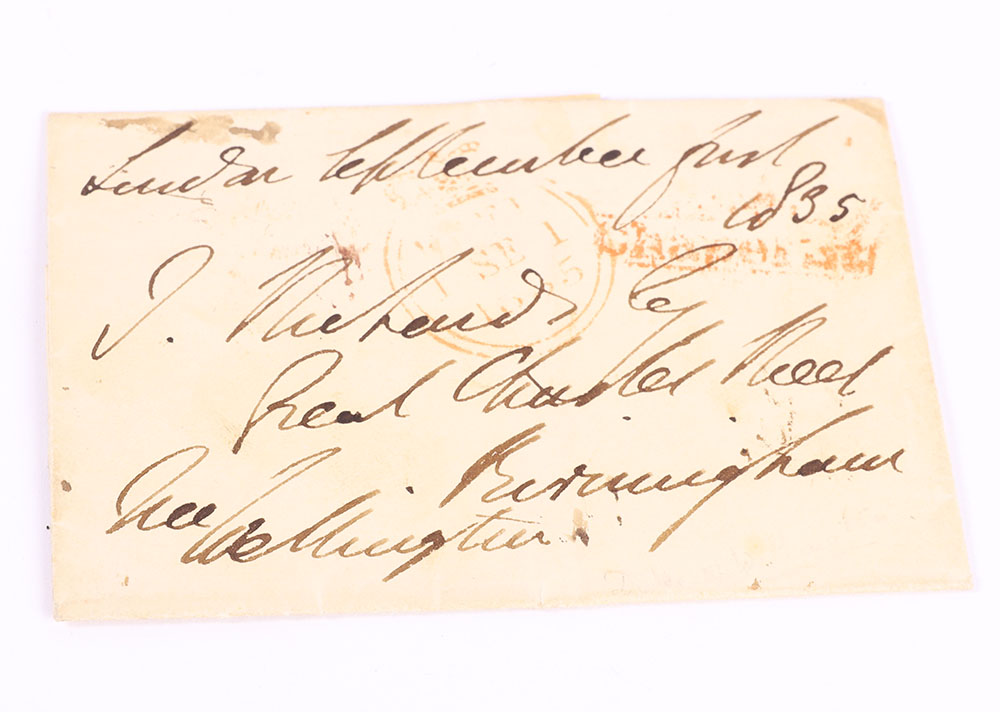 London September first
1835
J. Richards Esq
Great Charles Street
Birmingham
Free
Wellington.
SE 1
1835